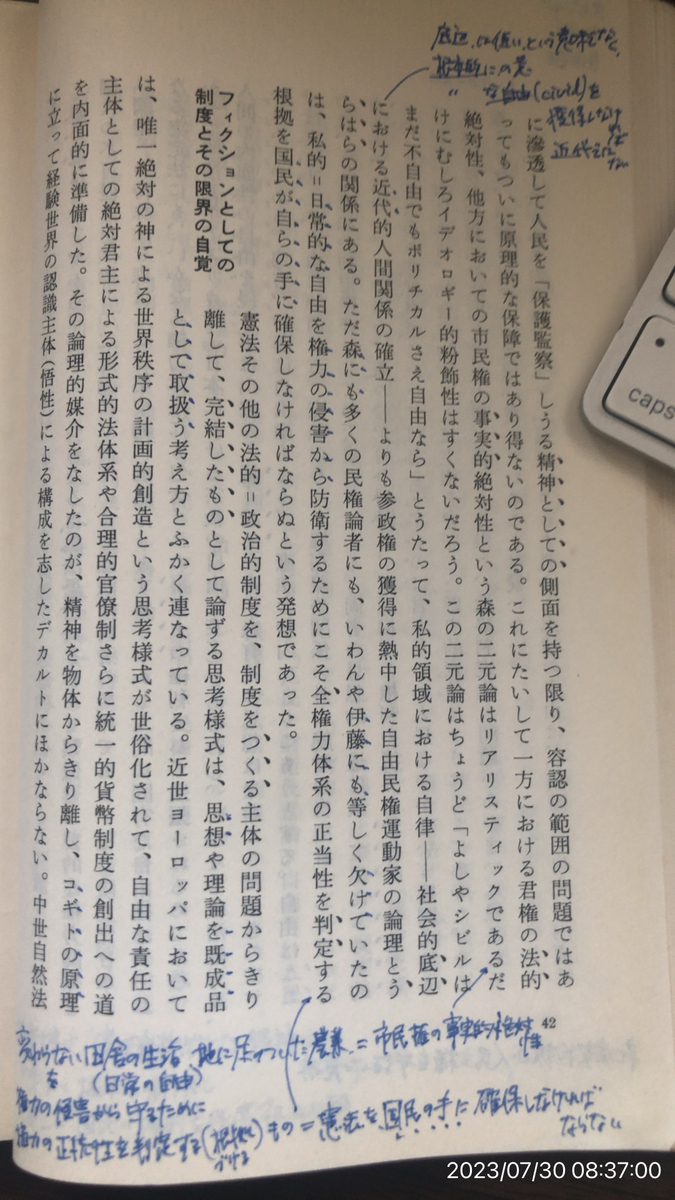 に滲透して人民を「保護監察」しうる精神としての側面を持つ限り、容認の範囲の問題ではあ
ってもついに原理的な保障ではあり得ないのである。これにたいして一方における君権の法的
絶対性、他方においての市民権の事実的絶対性という森の二元論はリアリスティックであるだ
けにむしろイデオロギー的粉飾性はすくないだろう。この二元論はちょうど「よしやシビルは
まだ不自由でもポリチカルさえ自由なら」とうたって、私的領域における自律——社会的底辺
における近代的人間関係の確立——よりも参政権の獲得に熱中した自由民権運動家の論理とう
らはらの関係にある。ただ森にも多くの民権論者にも、いわんや伊藤にも、等しく欠けていたの
は、私的=日常的な自由を権力の侵害から防衛するためにこそ全権力体系の正当性を判定する
根拠を国民が自らの手に確保しなければならぬという発想であった。
フィクションとしての
制度とその限界の自覚
憲法その他の法的=政治的制度を、制度をつくる主体の問題からきり
離して、完結したものとして論ずる思考様式は、思想や理論を既成品
として取扱う考え方とふかく連なっている。近世ヨーロッパにおいて
は、唯一絶対の神による世界秩序の計画的創造という思考様式が世俗化されて、自由な責任の
主体としての絶対君主による形式的法体系や合理的官僚制さらに統一的貨幣制度の創出への道
を内面的に準備した。その論理的媒介をなしたのが、精神を物体からきり離し、コギトの原理
に立って経験世界の認識主体(悟性)による構成を志したデカルトにほかならない。中世自然法
42
底辺、は低いという意味でなく、
根本的にの意
〃 な自由(civil)を
獲得しなければ
近代
変わらない田舎の生活、地に足のついた農業=市民権の事実的絶対性
(日常の自由)
を
権力の侵害から守るために
権力の正統性を判定する(根拠づける)もの=憲法を国民の手に確保しなければ
ならない
caps
2023/07/30 08:37:00